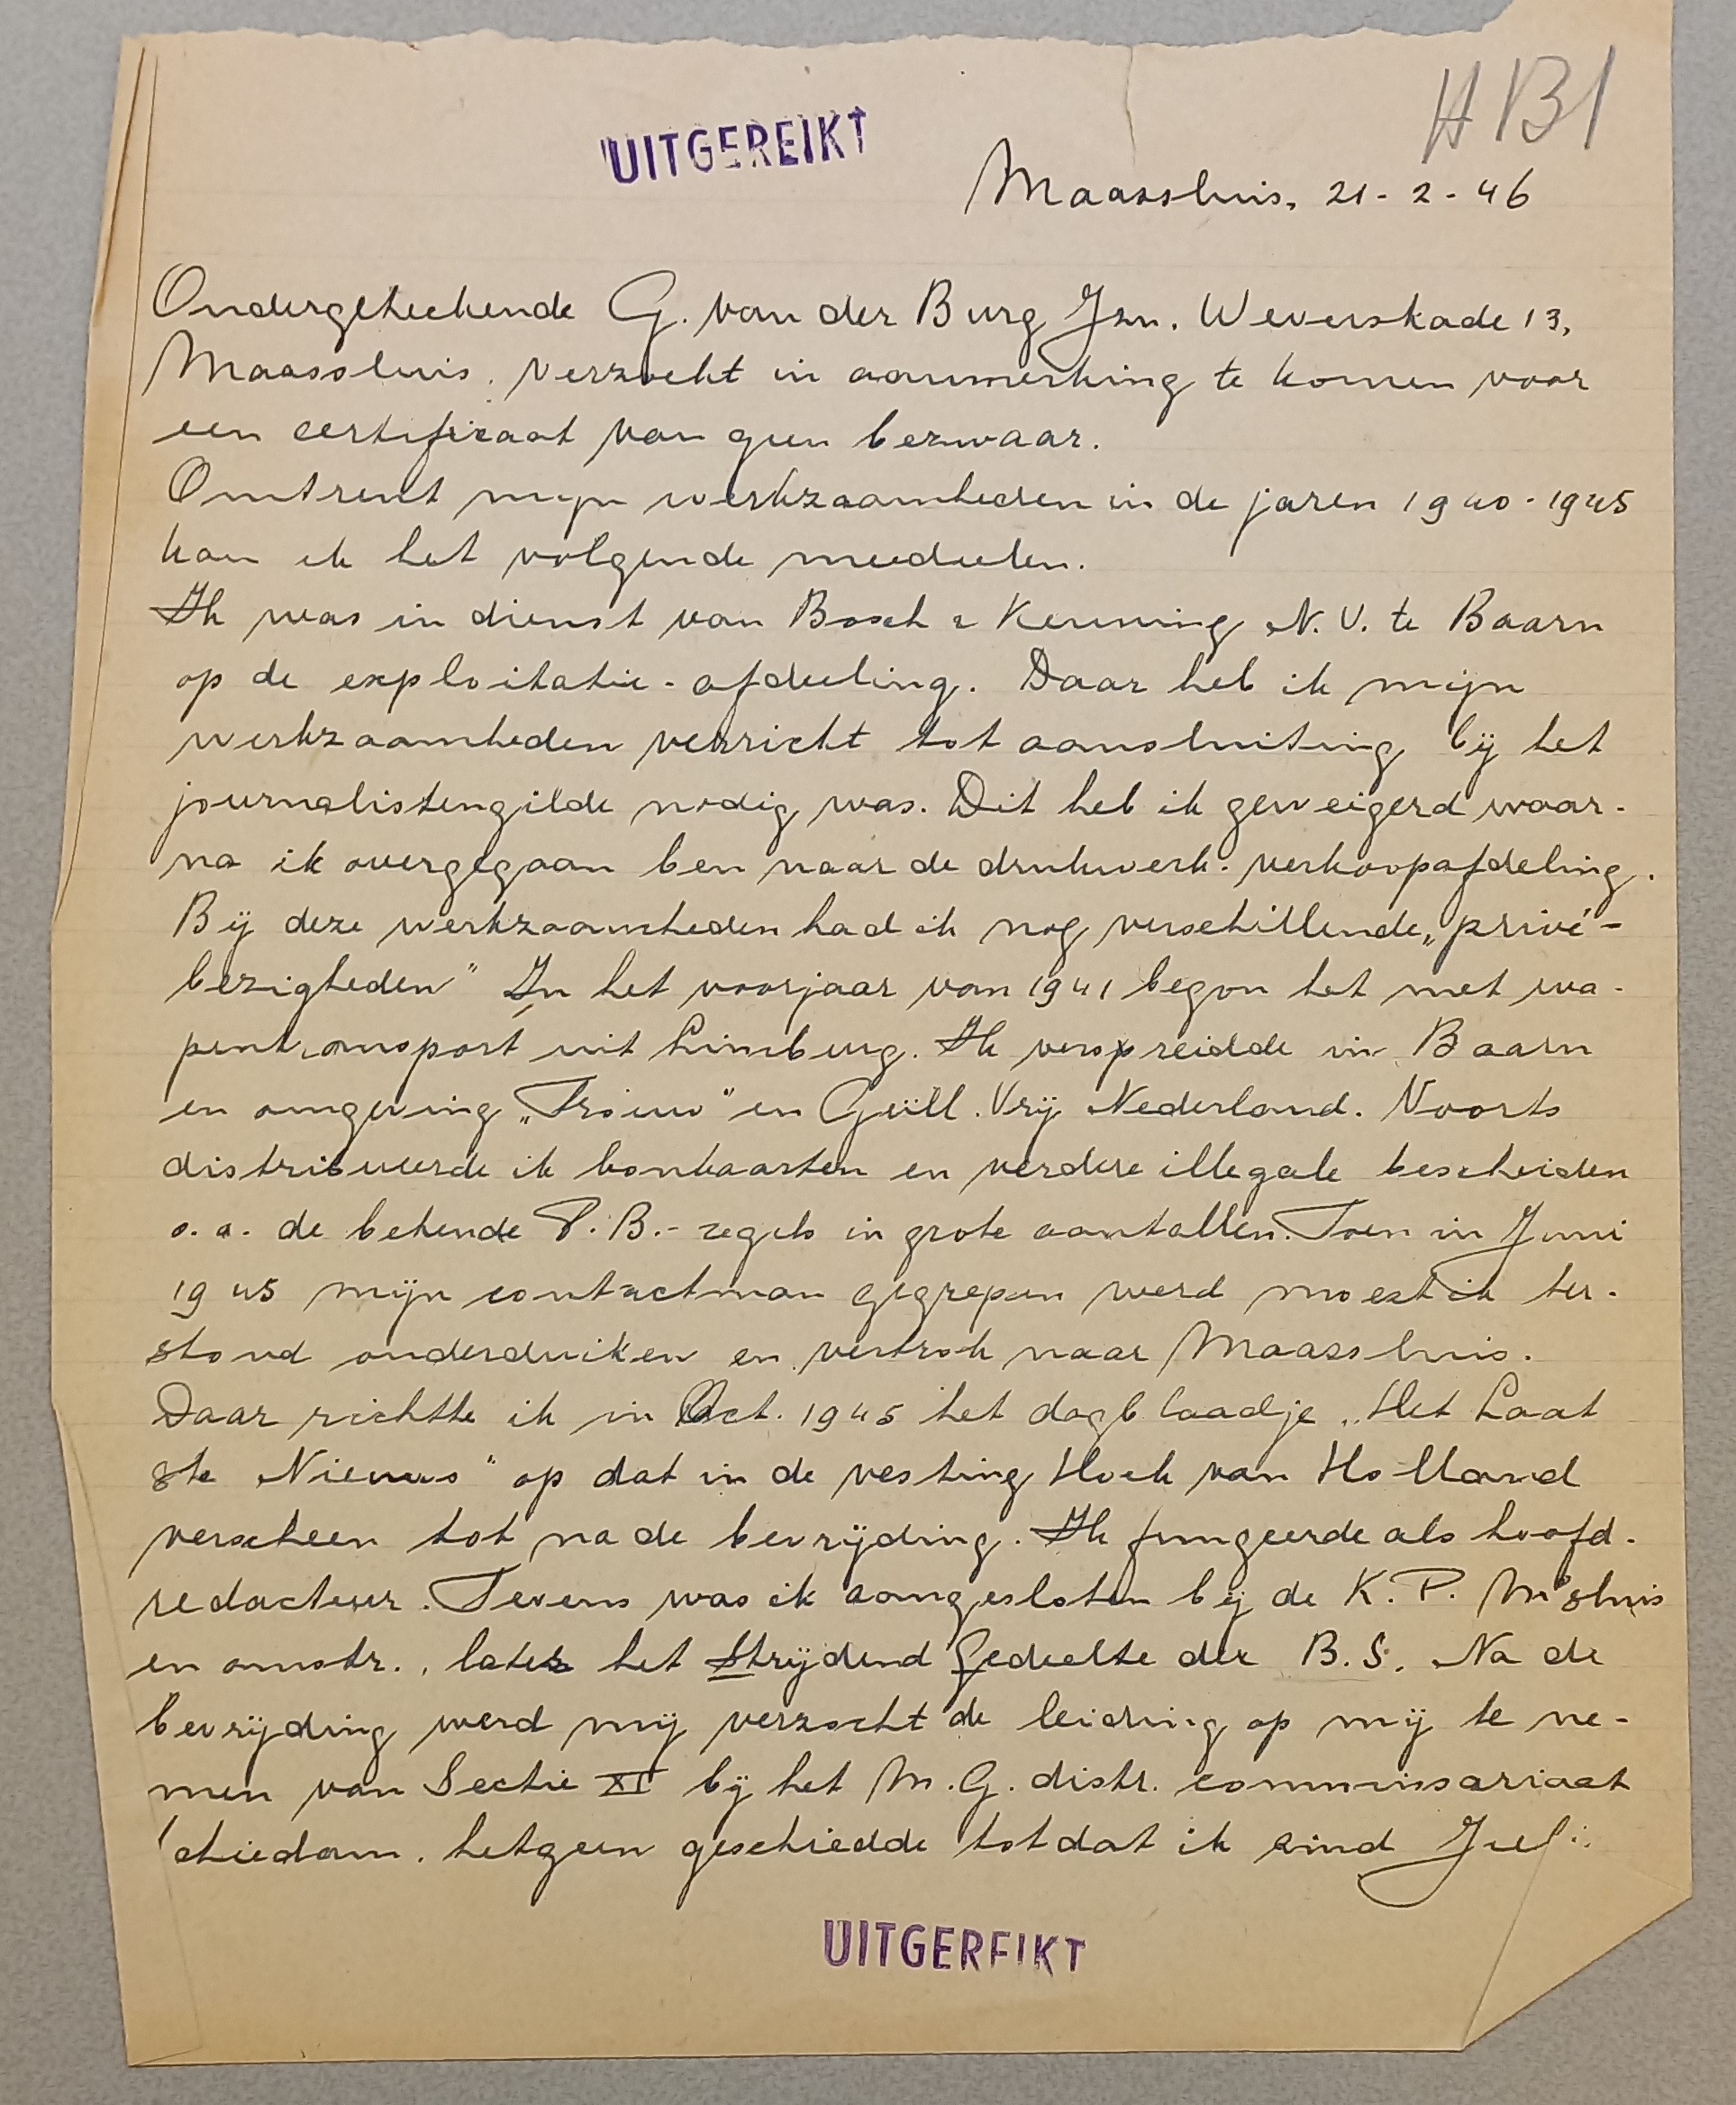 HB1
UITGEREIKT
Maassluis, 21-2-46
Ondergetekende G. van der Burg Jzn. Weverskade 13,
Maassluis, verzoekt in aanmerking te komen voor
een certificaat van geen bezwaar.
Omtrent mijn werkzaamheden in de jaren 1940-1945
kan ik het volgende meedeelen.
Ik was in dienst van Bosch & Keuning N.V. te Baarn
op de exploitatie-afdeeling. Daar heb ik mijn
werkzaamheden verricht tot aansluiting bij het
journalistengilde nodig was. Dit heb ik geweigerd waar-
na ik overgegaan ben naar de drukwerk-verkoopafdeling.
Bij deze werkzaamheden had ik nog verschillende „privé-
bezigheden" In het voorjaar van 1941 begon het met wa-
pentransport uit Limburg. Ik verspreidde in Baarn
en omgeving „Trouw" en Geïll. Vrij Nederland. Voorts
distribueerde ik bonkaarten en verdere illegale bescheiden
o.a. de bekende P.B.-zegels in grote aantallen. Toen in Juni
1945 mijn contactman gegrepen werd moest ik ter-
stond onderduiken en vertrok naar Maassluis.
Daar richtte ik in Oct. 1945 het dagblaadje „Het Laat
ste Nieuws" op dat in de vesting Hoek van Holland
verscheen tot na de bevrijding. Ik fungeerde als hoofd-
redacteur. Tevens was ik aangesloten bij de K.P. M'sluis
en omstr., later het Strijdend Gedeelte der B.S. Na de
bevrijding werd mij verzocht de leiding op mij te ne-
men van Sectie XI bij het M.G. distr. commissariaat
chiedam, hetgeen geschiedde totdat ik eind Juli
UITGEREIKT